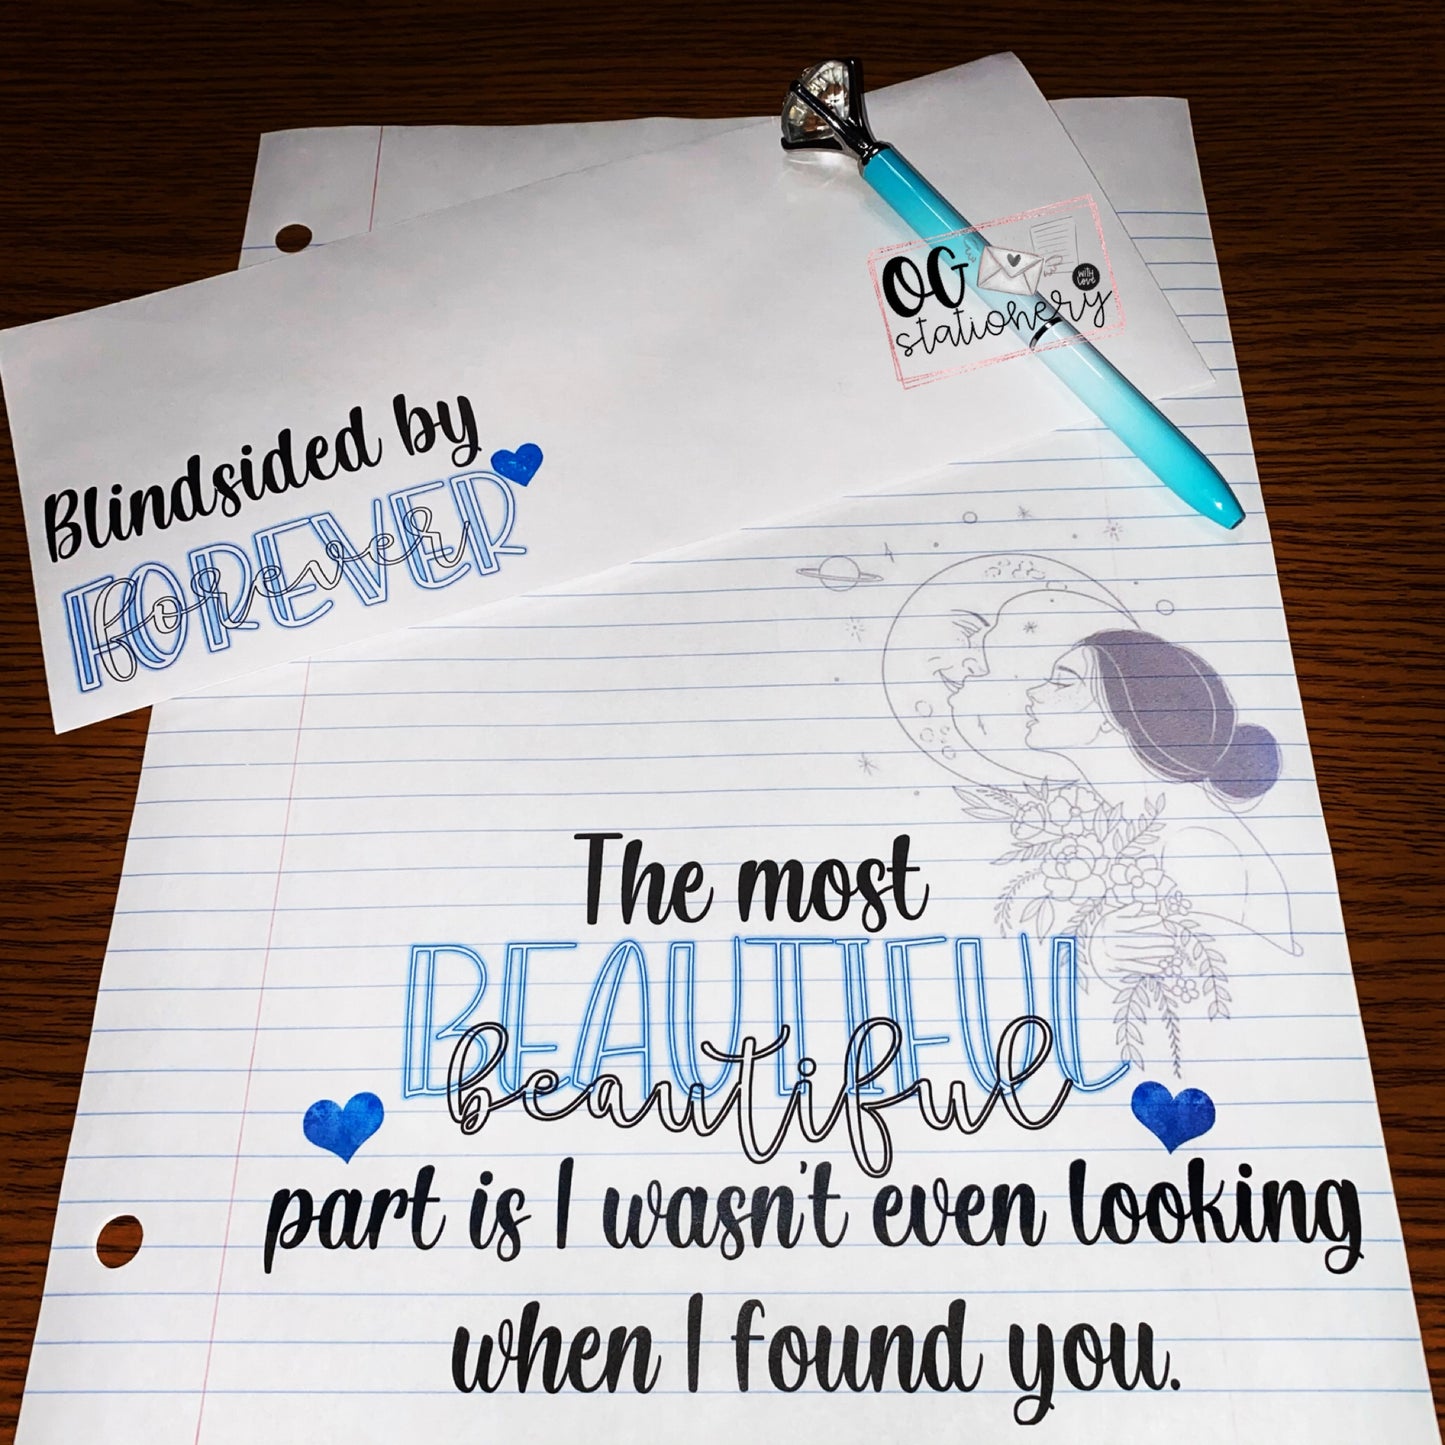 OG
stationery
with
love
Blindsided by
FOREVER
forever
The most
BEAUTIFUL
beautiful
part is I wasn't even looking
when I found you.